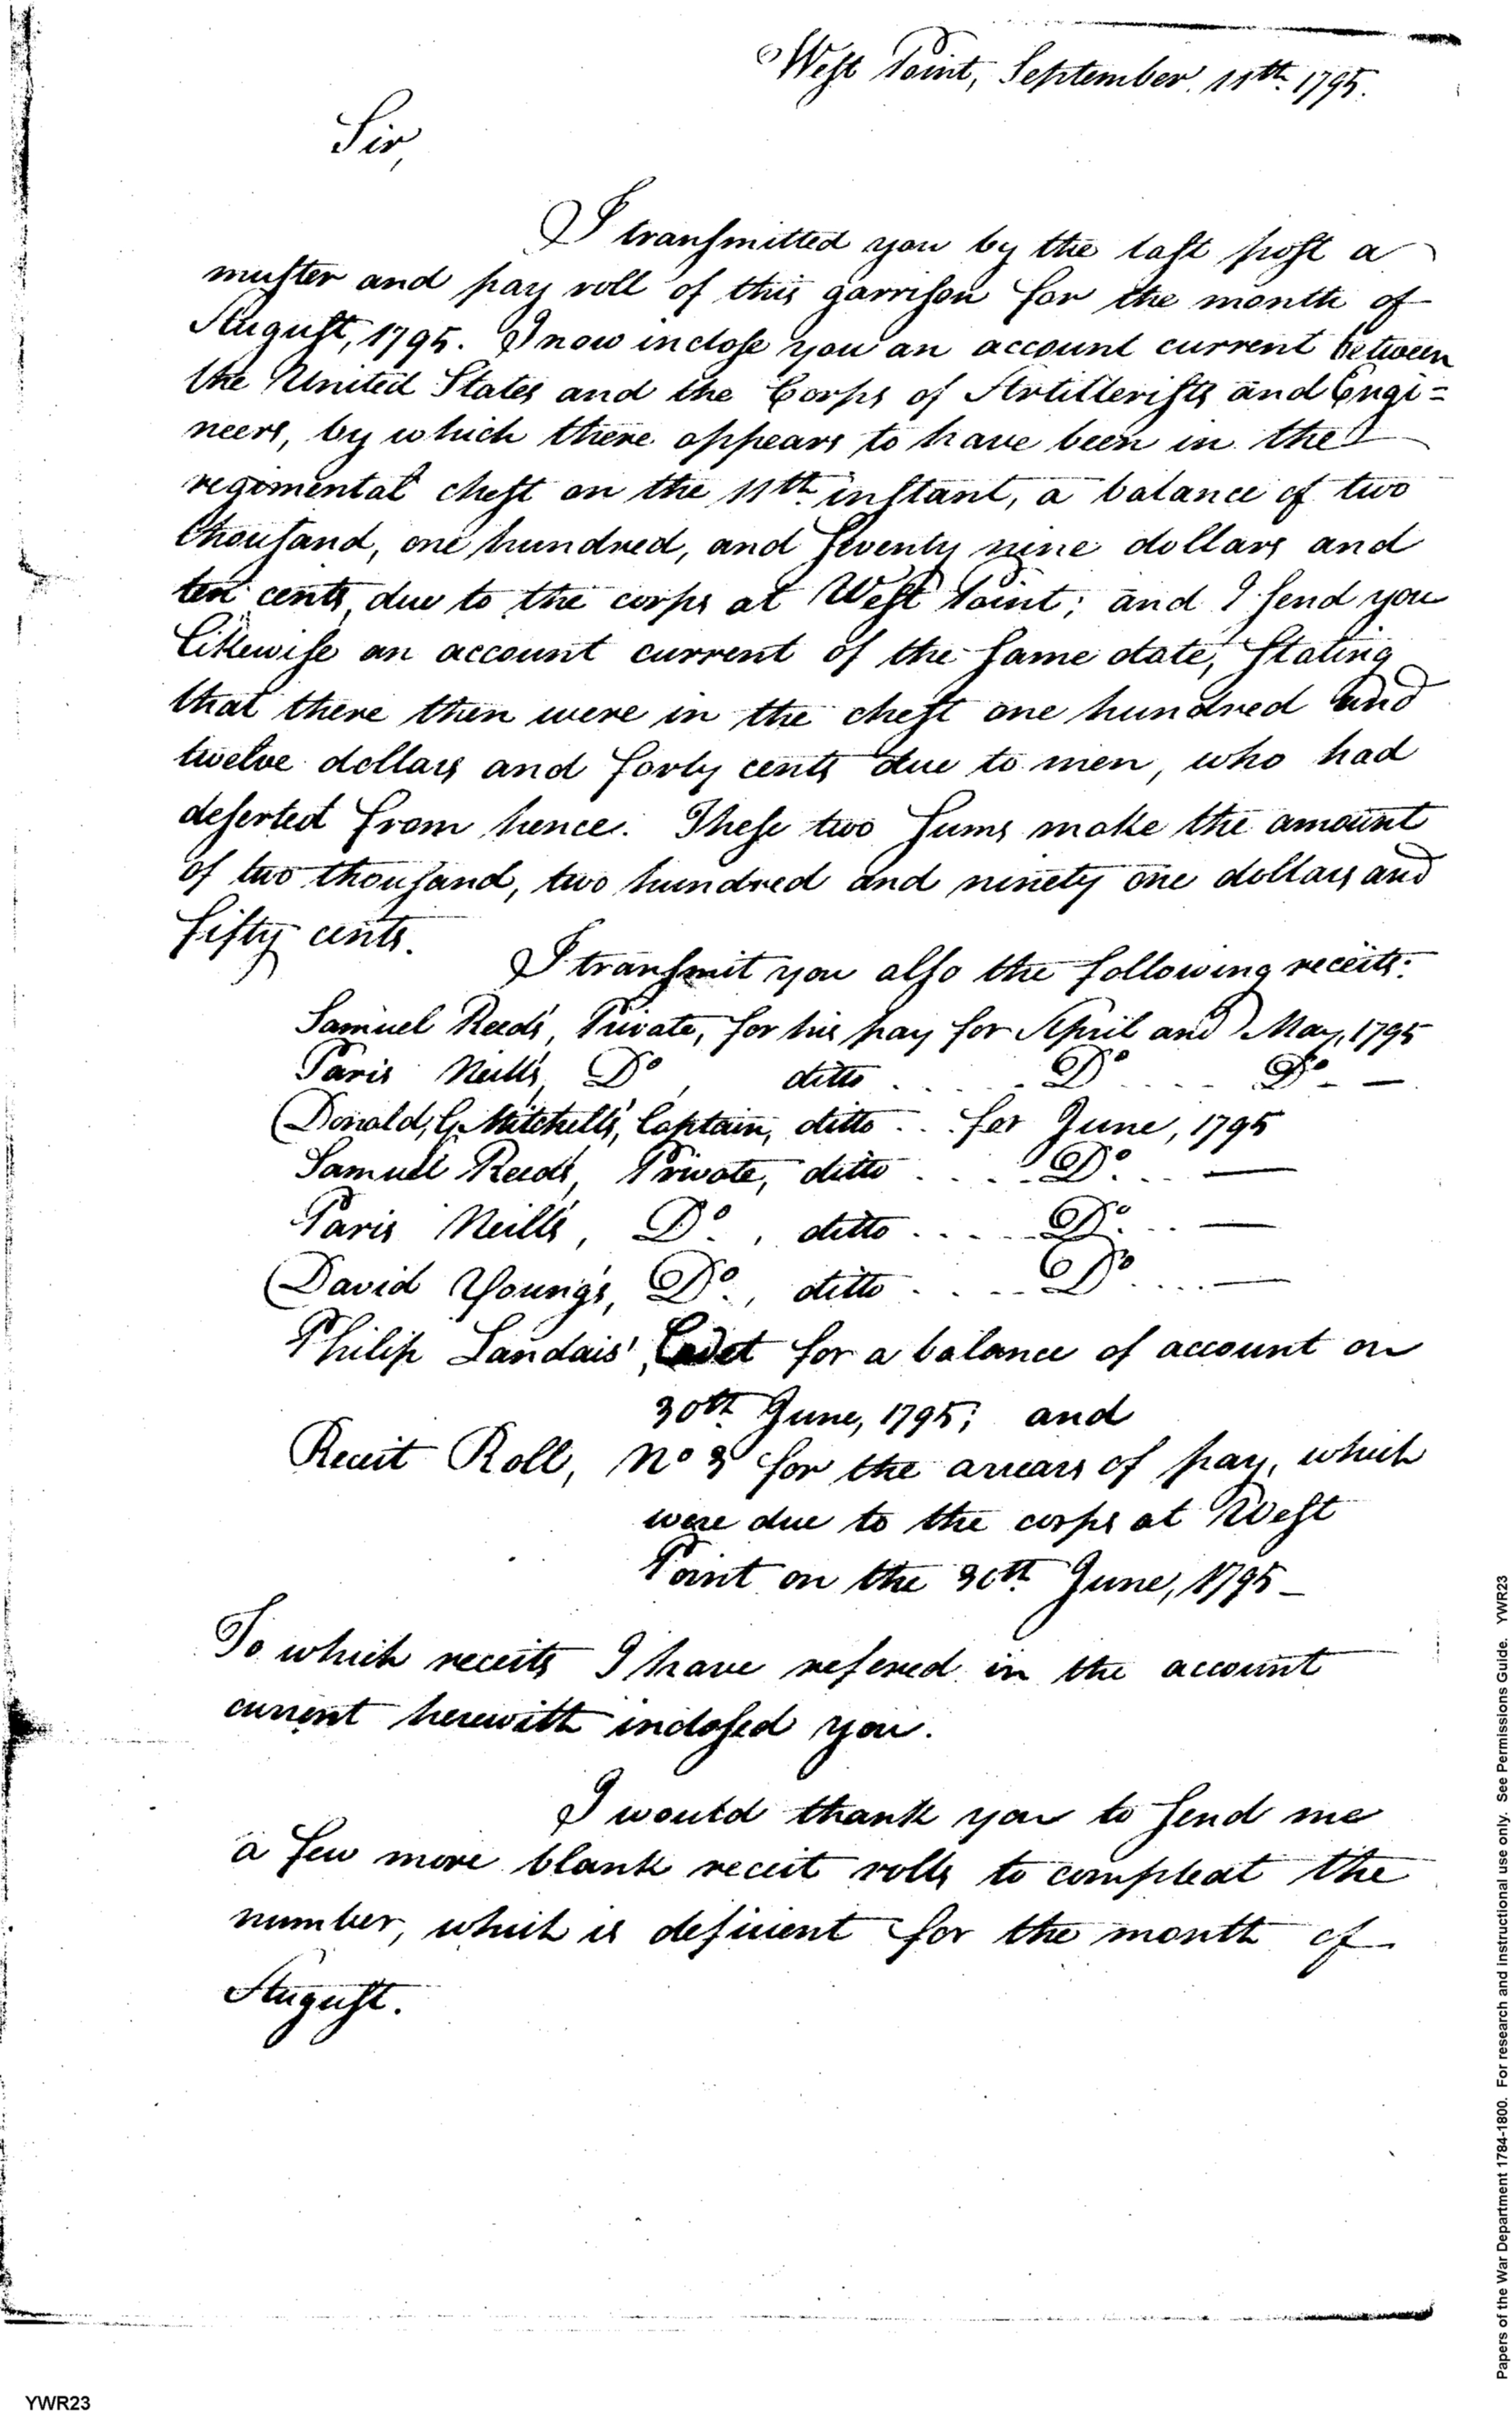 West Point, September. 11th. 1795.
Sir,
I transmitted you by the last post a
muster and pay roll of this garrison for the month of
August, 1795. I now inclose you an account current between
the United States and the Corps of Artillerists and Engi=
neers, by which there appears to have been in the
regimental chest on the 11th instant, a balance of two
thousand, one hundred, and seventy nine dollars and
ten cents, due to the corps at West Point; and I send you
likewise an account current of the same date, stating
that there then were in the chest one hundred and
twelve dollars and forty cents due to men, who had
deserted from hence. These two sums make the amount
of two thousand, two hundred and ninety one dollars and
fifty cents.
I transmit you also the following receits:
Samuel Reed's, Private, for his pay for April and May, 1795
Paris Neill's, Do, ditto . . . . Do . . . . Do. —
Donald, G. Mitchell's, Captain, ditto . . . for June, 1795
Samuel Reed's, Private, ditto . . . . Do. . . —
Paris Neill's, Do., ditto . . . . . Do. . . —
David Young's, Do., ditto . . . . Do . . . . —
Philip Landais', Cadet for a balance of account on
30th June, 1795; and
Receit Roll, No 3 for the arrears of pay, which
were due to the corps at West
Point on the 30th June, 1795 —
To which receits I have refered in the account
current herewith inclosed you.
I would thank you to send me
a few more blank receit rolls to compleat the
number, which is deficient for the month of
August.
Papers of the War Department 1784-1800. For research and instructional use only. See Permissions Guide. YWR23
YWR23